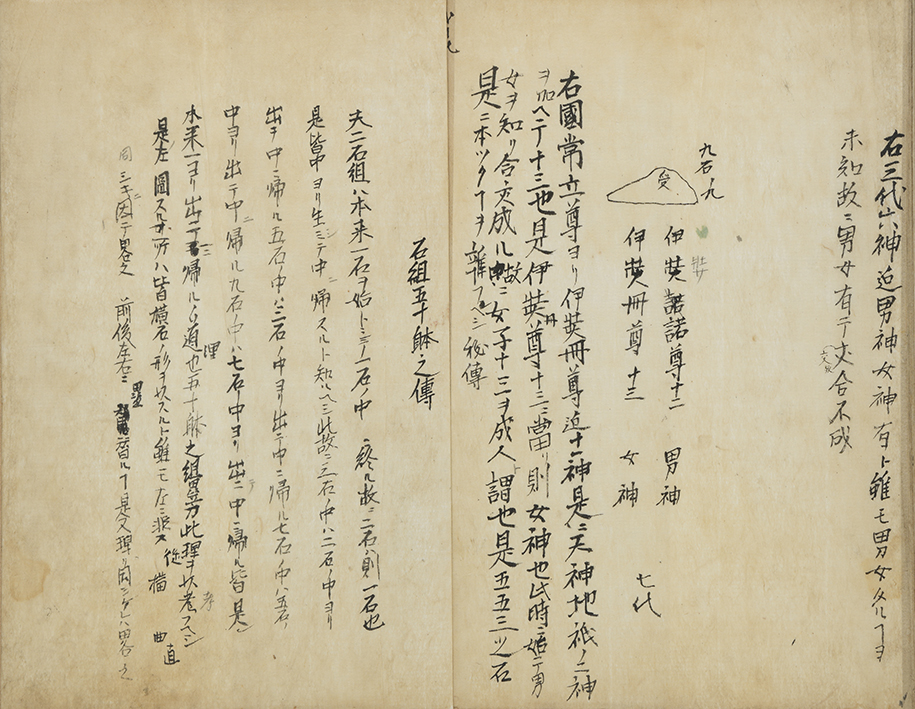 右三代ノ神迠男神女神有ト雖モ男女タルヿヲ
未知故ニ男女有テ交合不成
九石ノ九
受
伊弉諾尊十二 男神
伊弉冊尊十三 女神
七代
右國常立尊ヨリ伊弉冊尊迠十一神是ニ天神地祇ノ二神
ヲ加ヘテ十三也是伊弉冊尊十三ニ當リ則女神也此時ニ始テ男
女ヲ知リ合交成ル故ニ女子十三ヲ成人ト謂也是五五三ツ石
是ニ本ツクヿヲ辨フベシ秘傳
石組五十躰之傳
夫二石組ハ本来一石ヲ始トシテ一石ノ中ニ終ル故ニ二石ハ則一石也
是皆中ヨリ生シテ中ニ帰スルト知ヘシ此故ニ三石ノ中ハ二石ノ中ヨリ
出テ中ニ帰ル五石ノ中ハ三石ノ中ヨリ出テ中ニ帰ル七石ノ中ハ五石ノ
中ヨリ出テ中ニ帰ル九石ノ中ハ七石ノ中ヨリ出テ中ニ帰ル皆是
本来一ヨリ出テ一ニ帰ルノ道理也五十躰之組方此理ヲ以考フベシ
是ニ圖スル所ハ皆横石ノ形ヲ以スルト雖モ左ニ非ス縦横曲直
前後左右ニ